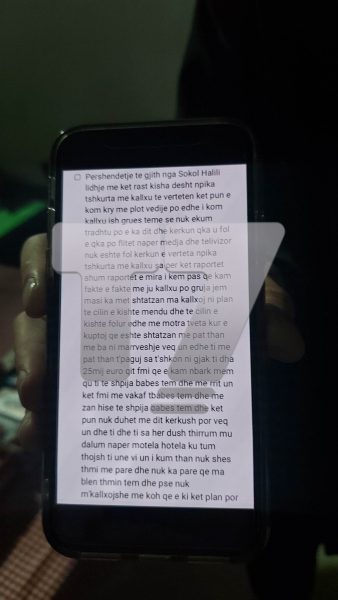 Pershendetje te gjith nga Sokol Halili
lidhje me ket rast kisha desht npika
tshkurta me kallxu te verteten ket pun e
kom kry me plot vedije po edhe i kom
kallxu ish grues teme se nuk ekum
tradhtu po e ka dit dhe kerkun qka u fol
e qka po flitet naper medja dhe telivizor
nuk eshte fol kerkun e verteta npika
tshkurta me kallxu sa per ket raportet
shum raportet e mira i kem pas qe kam
fakte e fakte me ju kallxu po gruja jem
masi ka met shtatzan ma kallxoj ni plan
te cilin e kishte mendu dhe te cilin e
kishte folur edhe me motra tveta kur e
kuptoj qe eshte shtatzan me pat than
me ba ni marrveshje veq un edhe ti me
pat than t'paguj sa t'shkon ni gjak ti dha
25mij euro git fmi qe e kam nbark mem
qu ti te shpija babes tem dhe me rrit un
ket fmi me vakaf tbabes tem dhe me
zan hise te shpija babes tem dhe ket
pun nuk duhet me dit kerkush por veq
un dhe ti dhe ti sa her dush thirrum mu
dalum naper motela hotela ku tum
thojsh ti une vi un i kum than nuk shes
thmi me pare dhe nuk ka pare qe ma
blen thmin tem dhe pse nuk
m'kallxojshe me koh qe e ki ket plan por